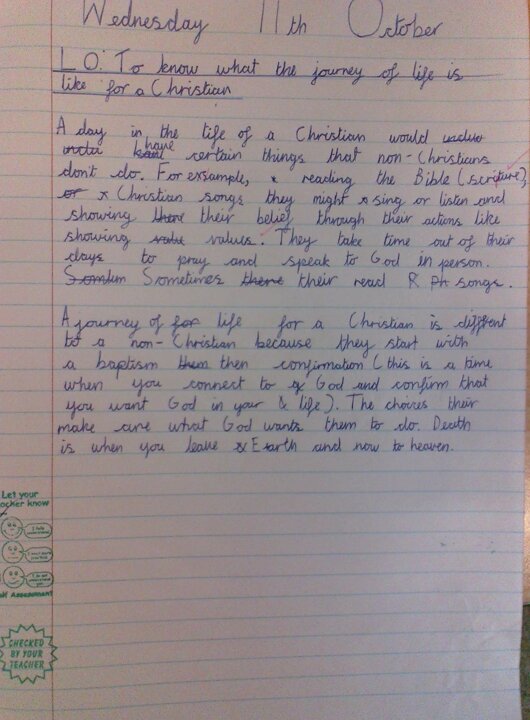 Wednesday 11th October
LO: To know what the journey of life is
like for a Christian
A day in the life of a Christian would
have certain things that non-Christians
dont do. For exsample, reading the Bible (scriture),
Christian songs they might sing or listen and
showing there their belief through their actions like
showing values. They take time out of their
days to pray and speak to God in person.
Somtim Sometimes there their read R Ph songs.
A journey of for life for a Christian is diffrent
to a non-Christian because they start with
a baptism them then confirmation (this is a time
when you connect to God and confirm that
you want God in your & life). The choices their
make are what God wants them to do. Death
is when you leave Earth and now to heaven.
Let your
know
CHECKED
BY YOUR
TEACHER